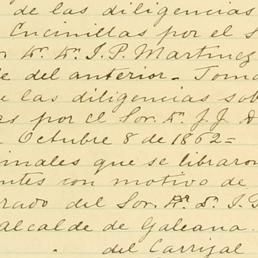 de las diligencias
Encinillas por el S
or. Dn. Dn. I. P. Martinez
e del anterior.- Tomo
e las diligencias sob
as por el Sor. Dn. J. J. A
Octubre 8 de 1862=
inales que se libraron
ntes con motivo de
rado del Sor. Dn. Dn. I. B
alcalde de Galeana.
del Carrizal